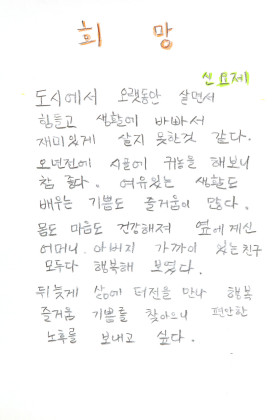 희 망
신요제
도시에서 오랫동안 살면서
힘들고 생활에 바빠서
재미있게 살지 못한것 같다.
오년전에 시골에 귀농을 해보니
참 좋다. 여유있는 생활도
배우는 기쁨도 즐거움이 많다.
몸도 마음도 건강해져 옆에계신
어머니. 아버지 가까이 있는친구
모두다 행복해 보였다.
뒤늦게 삶에 터전을 만나 행복
즐거움 기쁨을 찾아으니 편안한
노후를 보내고 싶다.